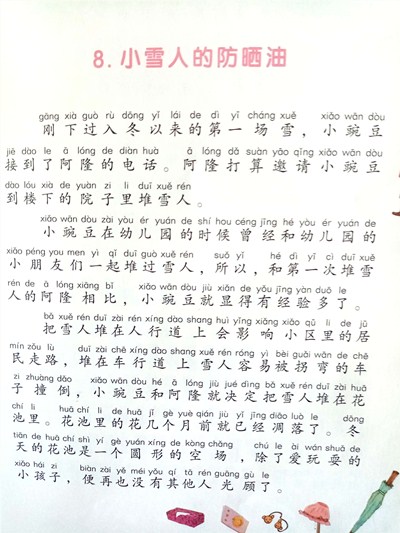 8. 小雪人的防晒油
gāng xià guò rù dōng yǐ lái de dì yī cháng xuě xiǎo wān dòu
刚下过入冬以来的第一场雪，小豌豆
jiē dào le ā lóng de diàn huà ā lóng dǎ suàn yāo qǐng xiǎo wān dòu
接到了阿隆的电话。阿隆打算邀请小豌豆
dào lóu xià de yuàn zi li duī xuě rén
到楼下的院子里堆雪人。
xiǎo wān dòu zài yòu ér yuán de shí hou céng jīng hé yòu ér yuán de
小豌豆在幼儿园的时候曾经和幼儿园的
xiǎo péng you men yì qǐ duī guò xuě rén suǒ yǐ hé dì yī cì duī xuě
小朋友们一起堆过雪人，所以，和第一次堆雪
rén de ā lóng xiāng bǐ xiǎo wān dòu jiù xiǎn de yǒu jīng yàn duō le
人的阿隆相比，小豌豆就显得有经验多了。
bǎ xuě rén duī zài rén xíng dào shang huì yǐng xiǎng xiǎo qū li de jū
把雪人堆在人行道上会影响小区里的居
mín zǒu lù duī zài chē xíng dào shang xuě rén róng yì bèi guǎi wān de chē
民走路，堆在车行道上雪人容易被拐弯的车
zi zhuàng dǎo xiǎo wān dòu hé ā lóng jiù jué dìng bǎ xuě rén duī zài huā
子撞倒，小豌豆和阿隆就决定把雪人堆在花
chí li huā chí li de huā jǐ gè yuè qián jiù yǐ jīng diāo luò le dōng
池里。花池里的花几个月前就已经凋落了。冬
tiān de huā chí shì yí gè yuán xíng de kòng chǎng chú le ài wán shuǎ de
天的花池是一个圆形的空场，除了爱玩耍的
xiǎo hái zi biàn zài yě méi yǒu qí tā rén guāng gù le
小孩子，便再也没有其他人光顾了。